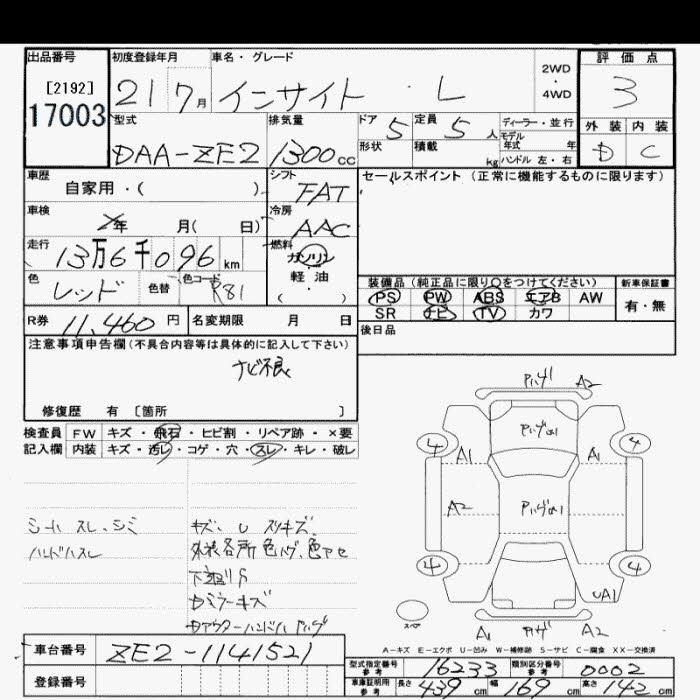 出品番号
[2192]
17003
初度登録年月
21 7月
車名・グレード
インサイト・L
2WD
・
4WD
評価点
3
外装 内装
D C
型式
DAA-ZE2
排気量
1300cc
ドア 5
定員 5人
形状
積載 kg
ディーラー・並行
モデル年式 年
ハンドル 左・右
車歴
自家用・( )
シフト
FAT
車検
年 月( 日)
冷房
AAC
走行
13万6千096km
燃料
ガソリン
軽油
( )
色
レッド
色替
色コード
R81
R券 11,460円
名変期限 月 日
セールスポイント(正常に機能するものに限ります)
装備品(純正品に限り○をつけてください)
PS PW ABS エアB AW
SR ナビ TV カワ
新車保証書
有・無
後日品
注意事項申告欄(不具合内容等は具体的に記入して下さい)
ナビ不良
修復歴 有 [箇所 ]
検査員 FW キズ・飛石・ヒビ割・リペア跡・×要
記入欄 内装 キズ・汚レ・コゲ・穴・スレ・キレ・破レ
シート スレ、シミ
ハンドルスレ
キズ、U スリキズ
外装各所 色ハゲ、色アセ
下廻りS
ドアミラーキズ
A2
4 4
A1 A1
A2
4 4
UA1
A1 A2
スペア
A-キズ E-エクボ U-凹み W-補修跡 S-サビ C-腐食 XX-交換済
車台番号 ZE2-1141521
登録番号
型式指定番号 参考 16233
類別区分番号 参考 0002
車庫証明用 参考 長さ 439cm 幅 169cm 高さ 142cm